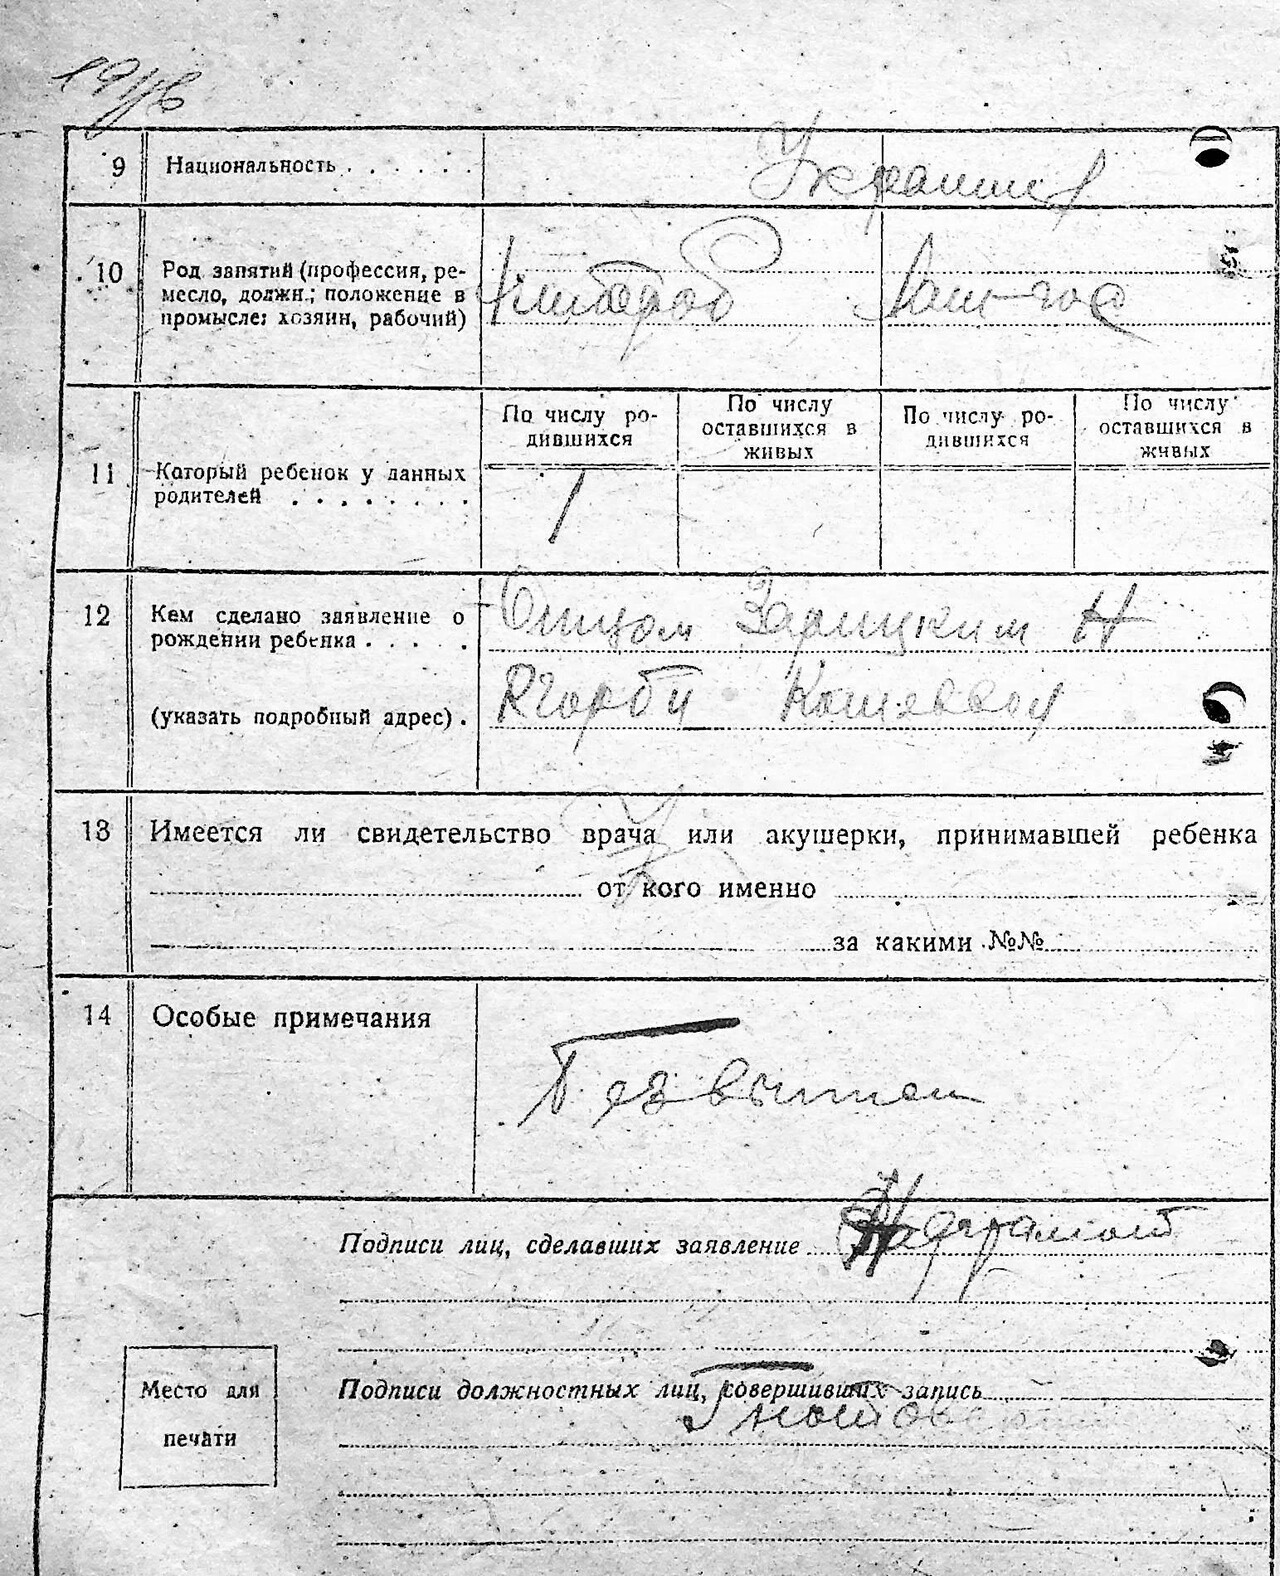 9 Национальность . . . . . .
Украинц
10 Род занятий (профессия, ре-
месло, должн.; положение в
промысле: хозяин, рабочий)
По числу ро-
дившихся
По числу
оставшихся в
живых
По числу ро-
дившихся
По числу
оставшихся в
живых
11 Который ребенок у данных
родителей . . . . . . . .
1
12 Кем сделано заявление о
рождении ребенка . . . . .
Отцом Зарицким Н
(указать подробный адрес) .
13 Имеется ли свидетельство врача или акушерки, принимавшей ребенка
от кого именно
за какими №№
14 Особые примечания
Подписи лиц, сделавших заявление
Место для
печати
Подписи должностных лиц, совершивших запись